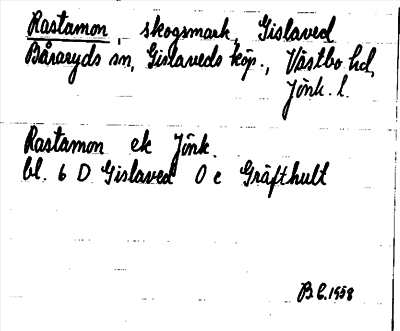 Rastamon, skogsmark, Gislaved
Båraryds sn, Gislaveds köp., Västbo hd,
Jönk. l.
Rastamon ek Jönk.
bl. 6 D Gislaved 0 e Gräfthult
B. C. 1958